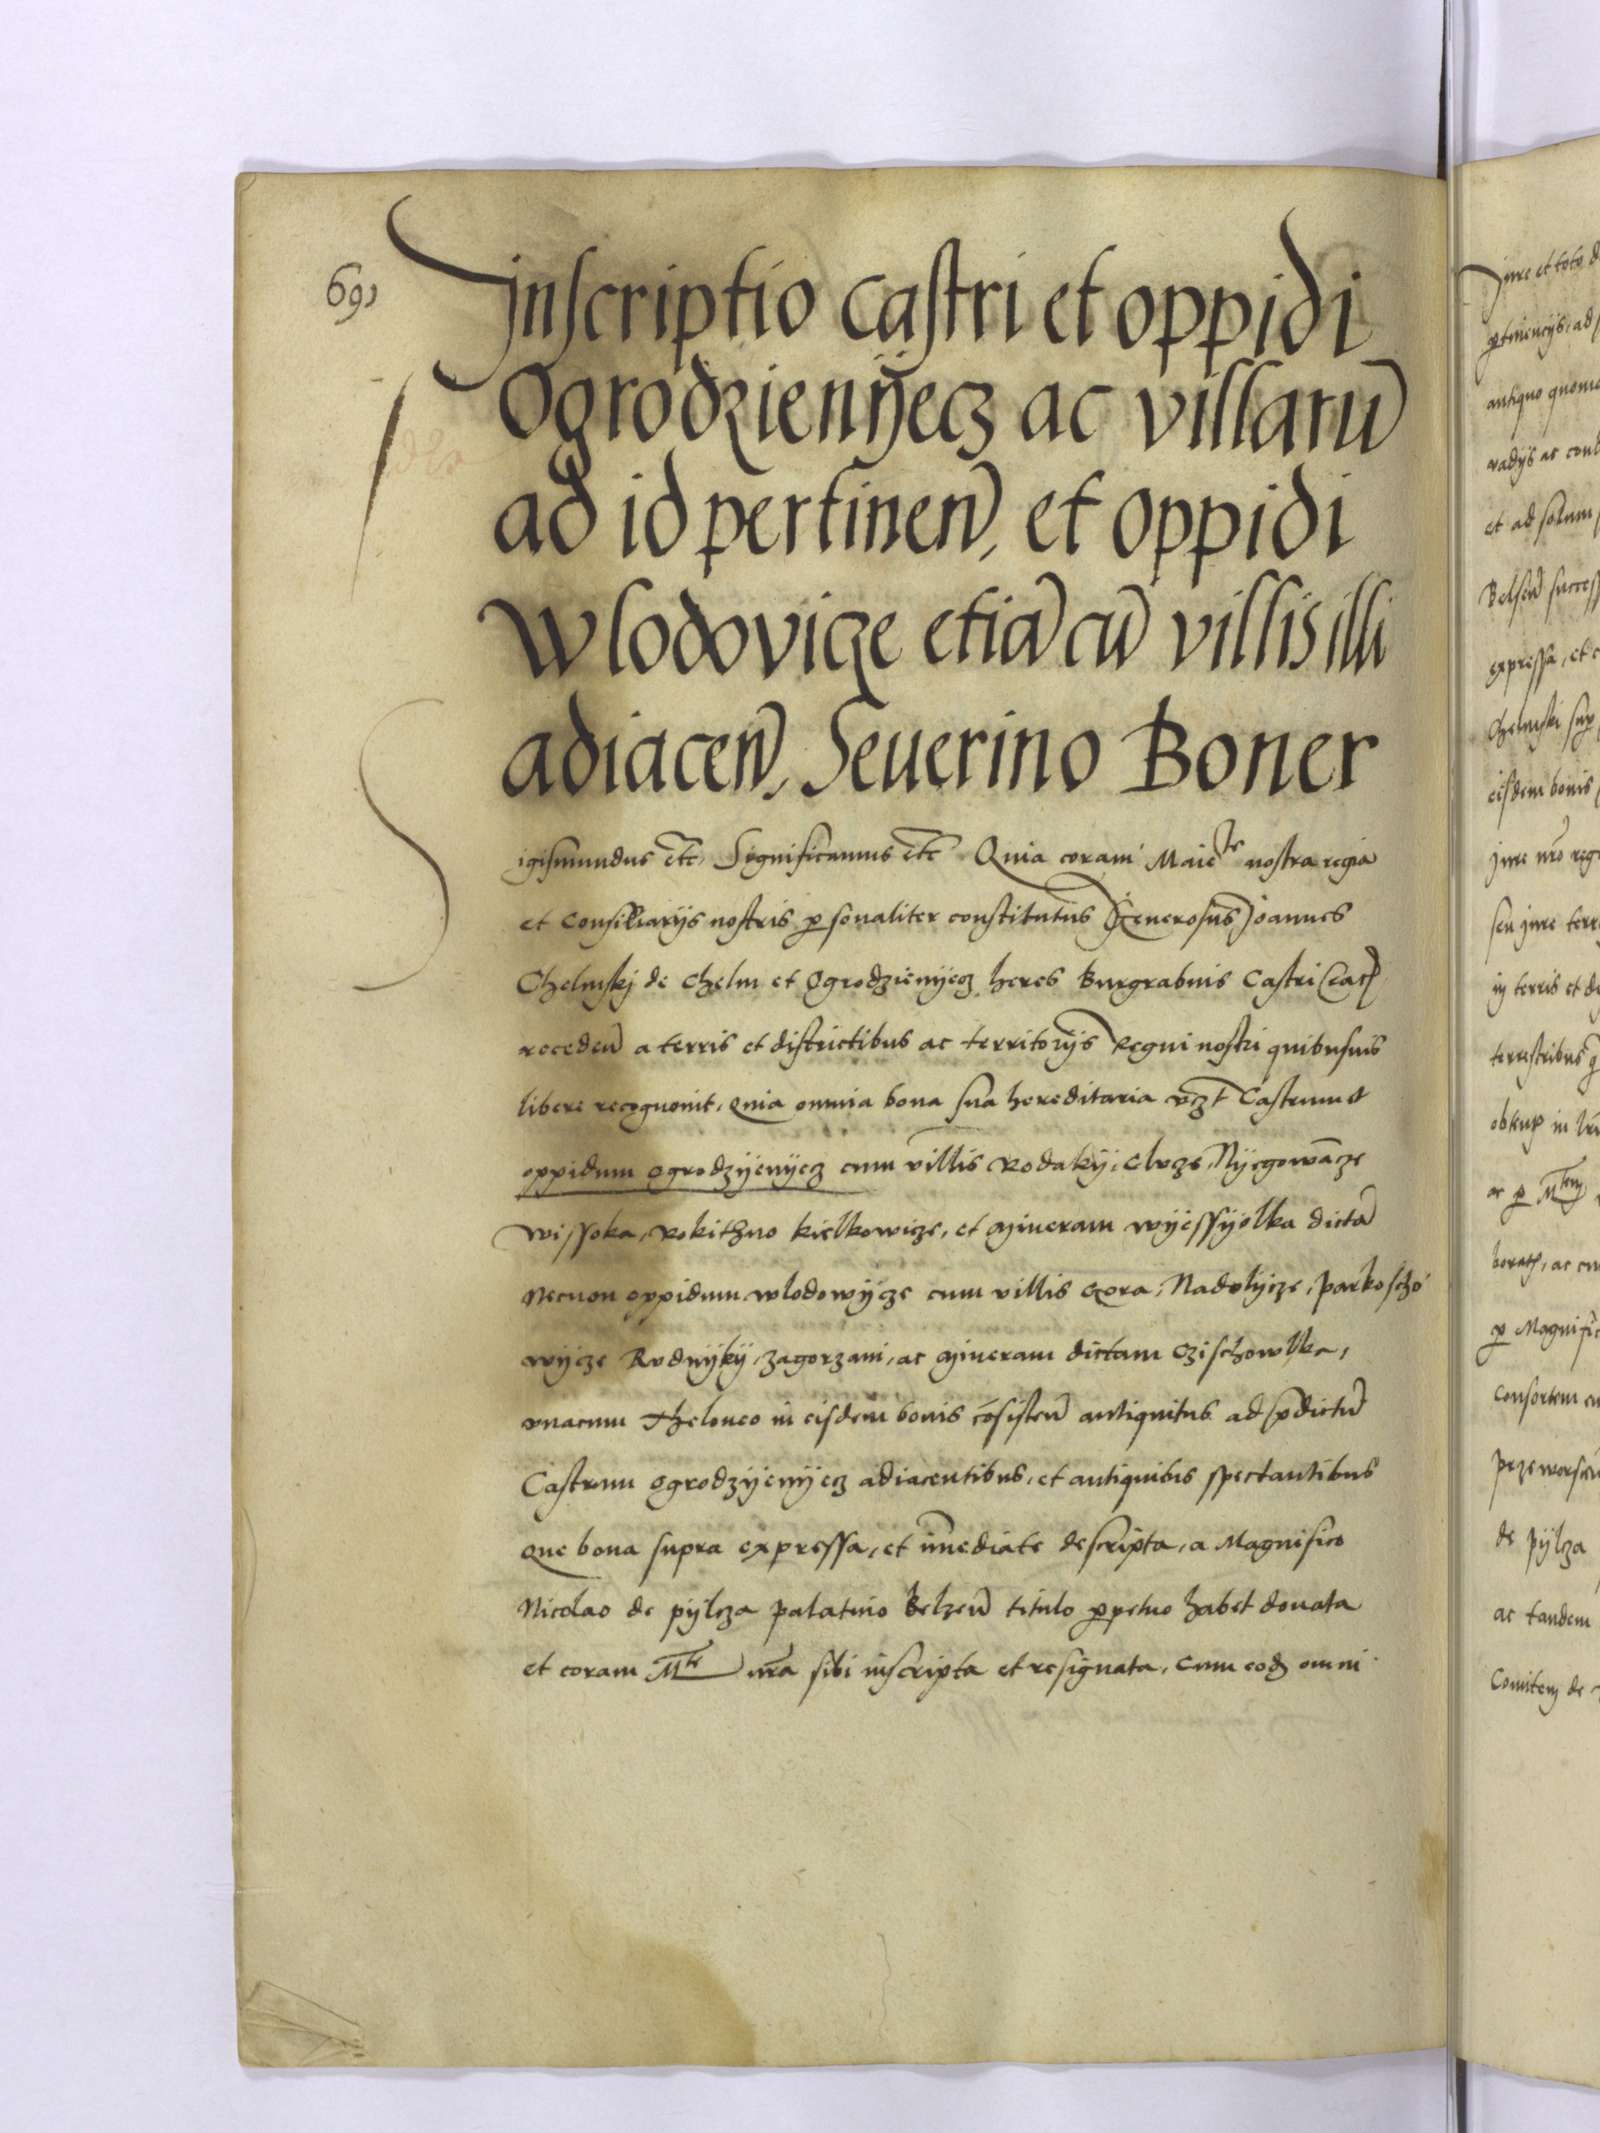 69
Inscriptio Castri et oppidi
Ogrodzienÿecz ac villarū
ad id pertinen, et oppidi
Wlodovicze etiā cū villis illi
adiacen, Seuerino Boner
Sigismundus etc, Significamus etc Quia coram Maiete nostra regia
et Consiliarijs nostris psonaliter constitutus Generosus Joannes
Chelmskj de Chelm et Ogrodzienÿecz heres Burgrabius Castri Crac
receden a terris et districtibus ac territorijs Regni nostri quibusuis
libere recognouit, Quia omnia bona sua hereditaria vczt Castrum et
oppidum Ogrodzÿenÿecz cum villis Rodakÿ, Clucze, Nÿegowācze
Wissoka, Rokithno kielkowicze, et mineram wÿessÿolka dictā
Necnon oppidum wlodowÿcze cum villis Gora, Nadolÿcze, parkoscho
wÿcze Rudnÿkÿ, zagorzani, ac mineram dictam Czischowlka,
vnacum Theloneo in eisdem bonis cōsisten antiquitus ad pdictū
Castrum Ogrodzÿenÿecz adiacentibus, et antiquibus spectantibus
Que bona supra expressa, et īmediate descripta, a Magnifico
Nicolao de pÿlcza palatino Belzen titulo ppetuo habet donata
et coram Mte nra sibi inscripta et resignata, Cum eodz omni
Jure et toto
ptinencijs, ad
antiquo quomo
vadijs ac
et ad solum
Belsen success
expressa, et
Chelmski sup
eisdem bonis
jure nro reg
seu jure terr
in terris et
terrestribus
in
ac p Mtem
ac cu
p Magnific
Consortem
de pÿlcza
ac tandem
Comitem de